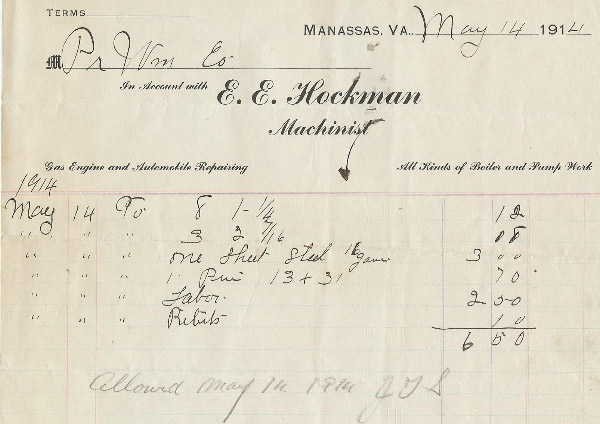 TERMS
MANASSAS, VA., May 14 1914
M Pr Wm Co
In Account with E. E. Hockman
Machinist
Gas Engine and Automobile Repairing All Kinds of Boiler and Pump Work
1914
May 14 To 8 1-1/4 12
" " " 3 2 7/16 08
" " " one Sheet Steel 16 3 00
" " " 1 13 + 31 70
" " " Labor. 2 50
" " " 10
6 50
Allowed May 14 1914